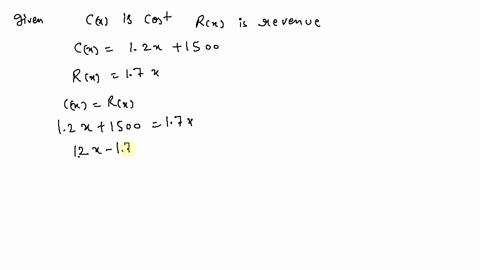 Given C(x) is Cost R(x) is revenue
C(x) = 1.2x + 1500
R(x) = 1.7x
C(x) = R(x)
1.2x + 1500 = 1.7x
1.2x - 1.7